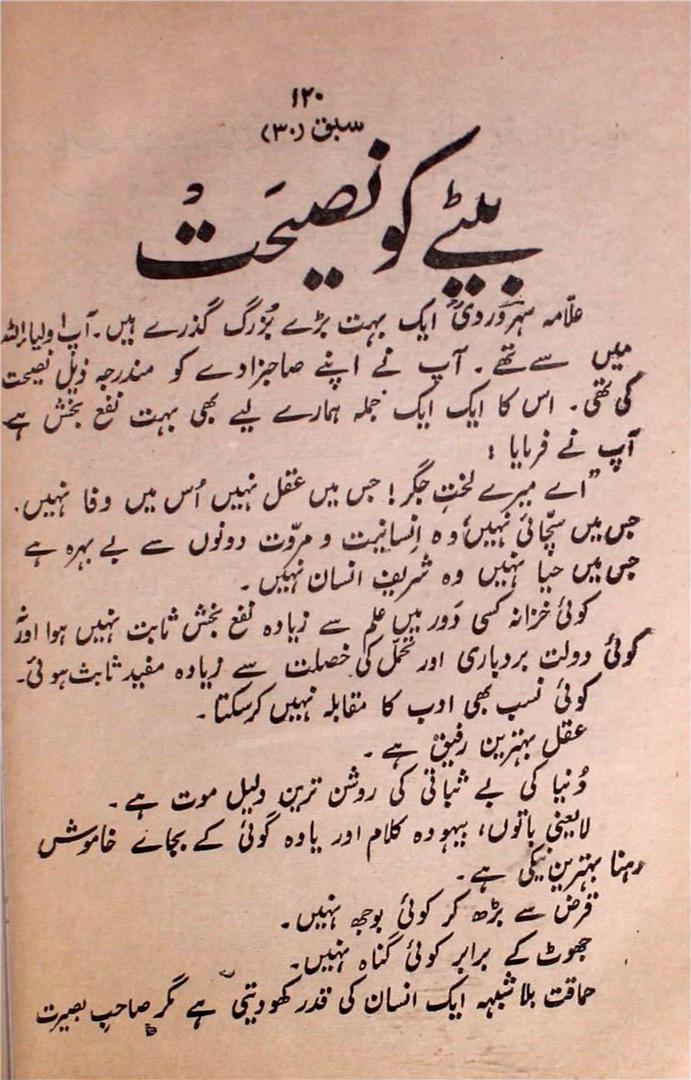 ۱۲۰
سبق (۳۰)
بیٹے کو نصیحت
علّامہ سہروردیؒ ایک بہت بڑے بزرگ گذرے ہیں۔ آپ اولیاء اللہ
میں سے تھے۔ آپ نے اپنے صاحبزادے کو مندرجہ ذیل نصیحت
کی تھی۔ اس کا ایک ایک جملہ ہمارے لیے بھی بہت نفع بخش ہے
آپ نے فرمایا :
"اے میرے لختِ جگر! جس میں عقل نہیں اُس میں وفا نہیں۔
جس میں سچّائی نہیں، وہ اِنسانیت و مروّت دونوں سے بے بہرہ ہے
جس میں حیا نہیں وہ شریف انسان نہیں۔
کوئی خزانہ کسی دَور میں علم سے زیادہ نفع بخش ثابت نہیں ہوا اور نہ
کوئی دولت بردباری اور تحمّل کی خصلت سے زیادہ مفید ثابت ہوئی۔
کوئی نسب بھی ادب کا مقابلہ نہیں کرسکتا۔
عقل بہترین رفیق ہے۔
دُنیا کی بے ثباتی کی روشن ترین دلیل موت ہے۔
لایعنی باتوں، بیہودہ کلام اور یاوہ گوئی کے بجائے خاموش
رہنا بہترین نیکی ہے۔
قرض سے بڑھ کر کوئی بوجھ نہیں۔
جھوٹ کے برابر کوئی گناہ نہیں۔
حماقت بلاشبہہ ایک انسان کی قدر کھودیتی ہے مگر صاحبِ بصیرت